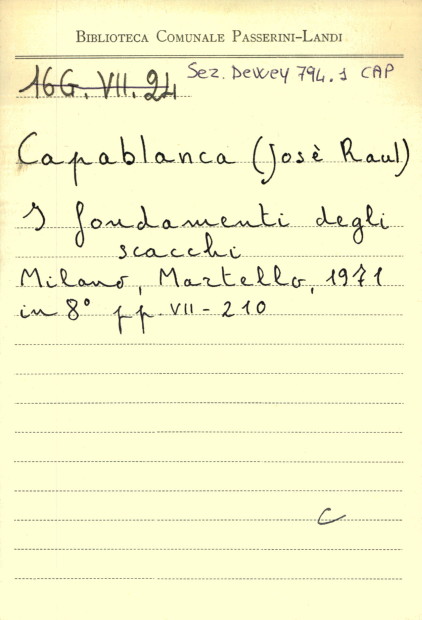 BIBLIOTECA COMUNALE PASSERINI-LANDI
16G. VII. 24 Sez. Dewey 794.1 CAP
Capablanca (Josè Raul)
I fondamenti degli
scacchi
Milano, Martello, 1971
in 8° pp. VII - 210
C